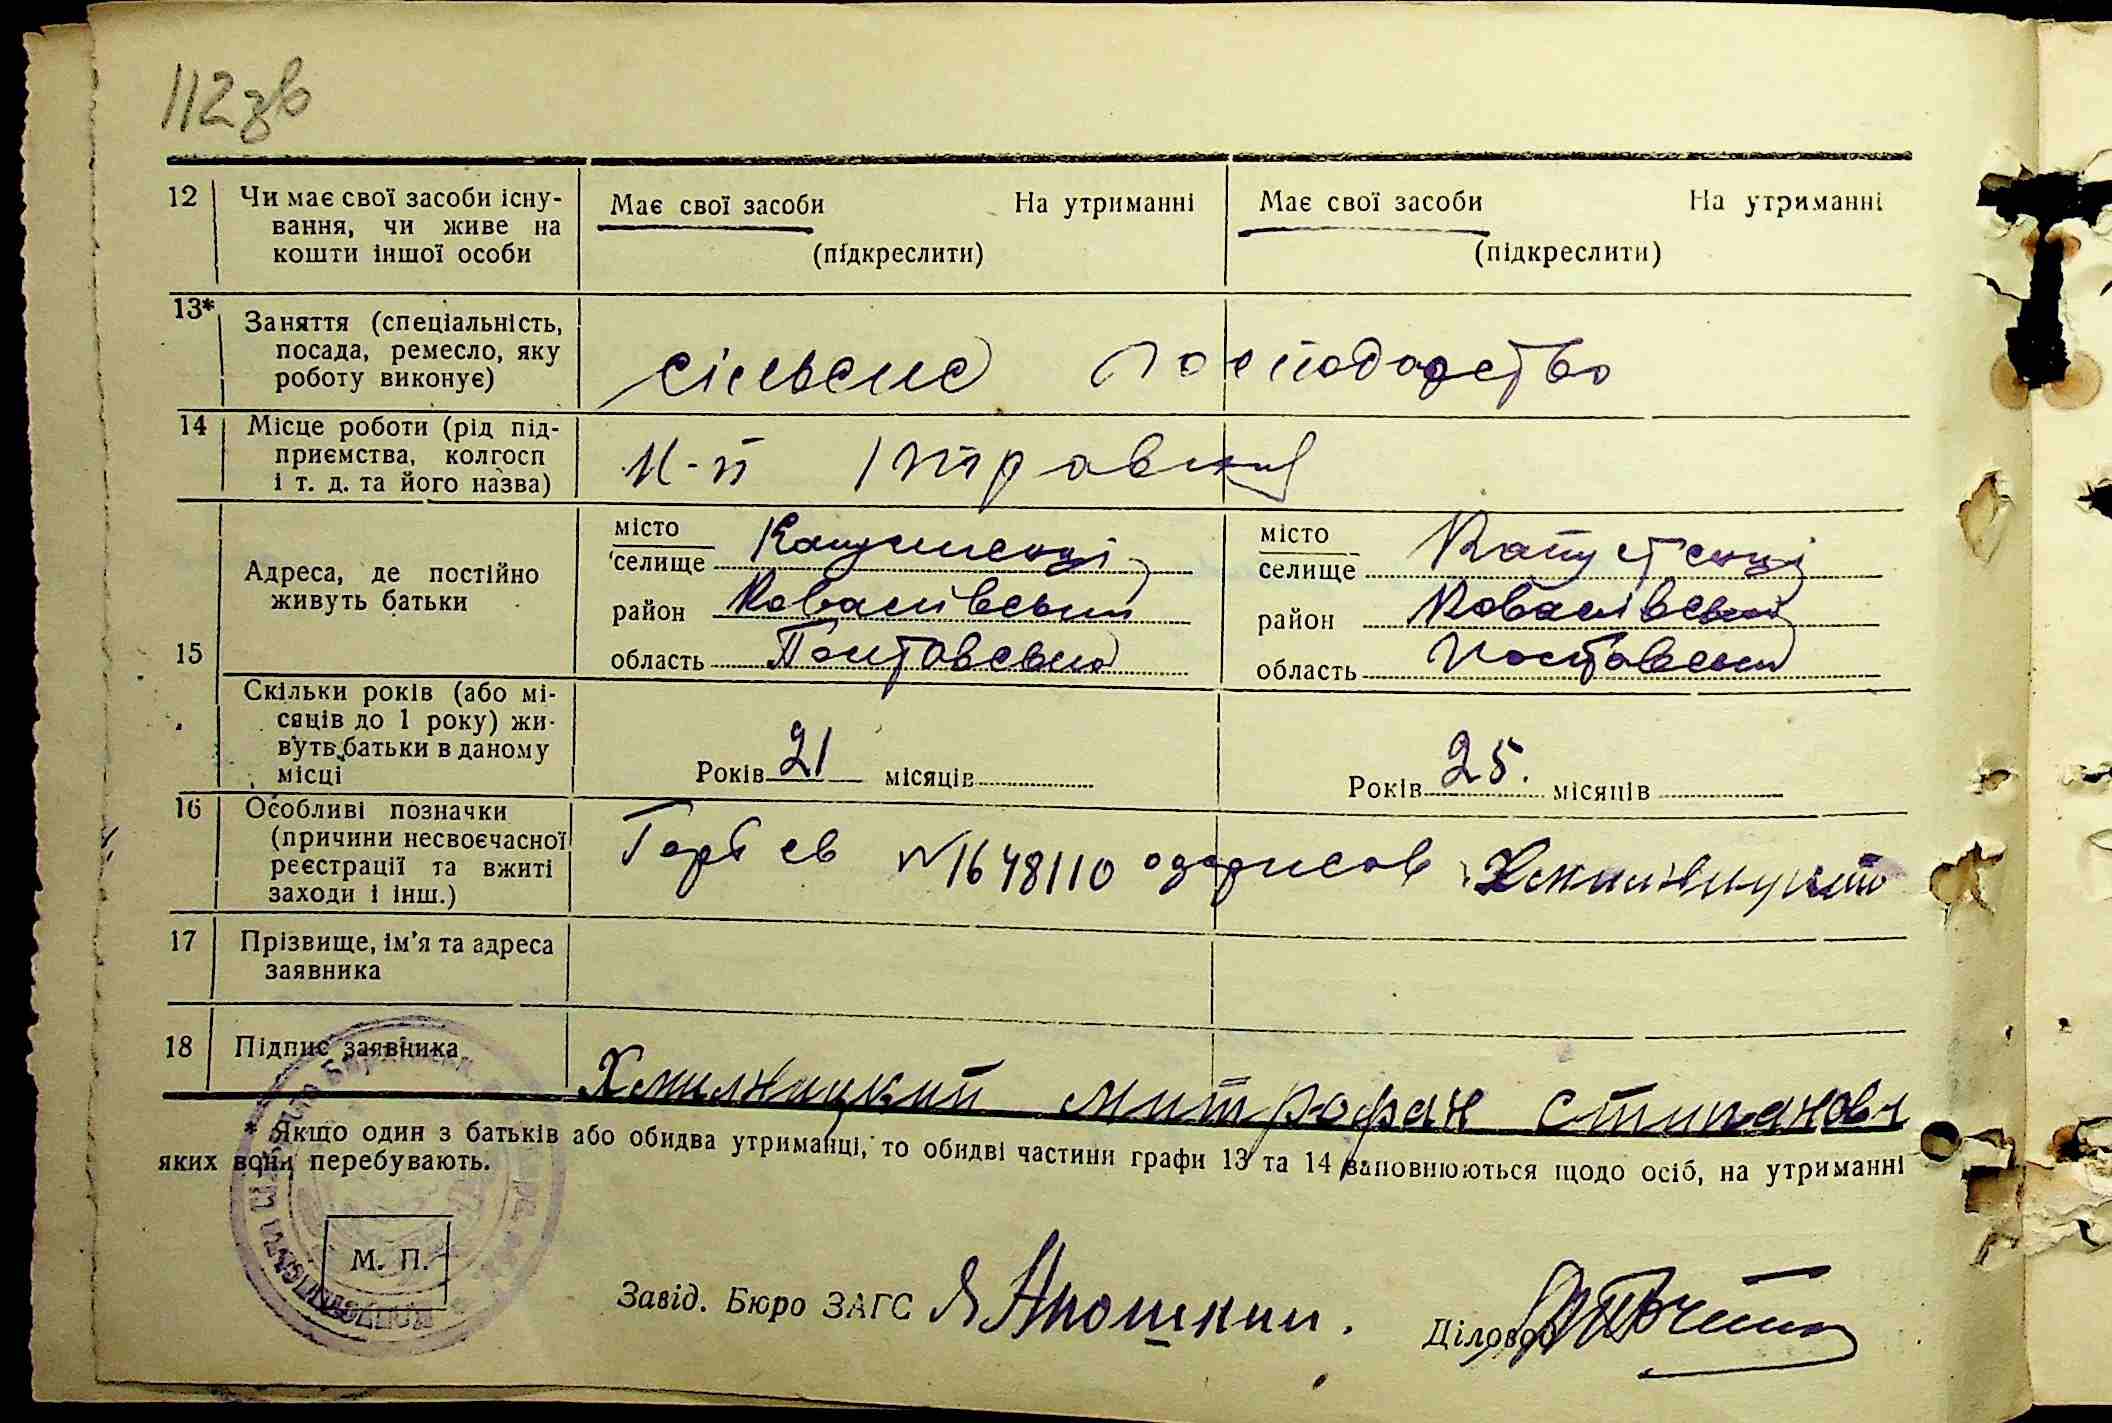 112зв
12 Чи має свої засоби існу-
вання, чи живе на
кошти іншої особи
Має свої засоби На утриманні
(підкреслити)
Має свої засоби На утриманні
(підкреслити)
13* Заняття (спеціальність,
посада, ремесло, яку
роботу виконує)
сільське господарство
14 Місце роботи (рід під-
приємства, колгосп
і т. д. та його назва)
15 Адреса, де постійно
живуть батьки
місто
селище Капустенці
район Ковалівський
область Полтавська
місто
селище Капустенці
район Ковалівський
область Полтавська
Скільки років (або мі-
сяців до 1 року) жи-
вуть батьки в даному
місці
Років 21 місяців
Років 25. місяців
16 Особливі позначки
(причини несвоєчасної
реєстрації та вжиті
заходи і інш.)
№1648110 одержав Хмильницкий
17 Прізвище, ім'я та адреса
заявника
18 Підпис заявника
Хмилницкий митрофан стипанови
* Якщо один з батьків або обидва утриманці, то обидві частини графи 13 та 14 заповнюються щодо осіб, на утриманні
яких вони перебувають.
М. П.
Завід. Бюро ЗАГС Я Аношкин.
Діловод